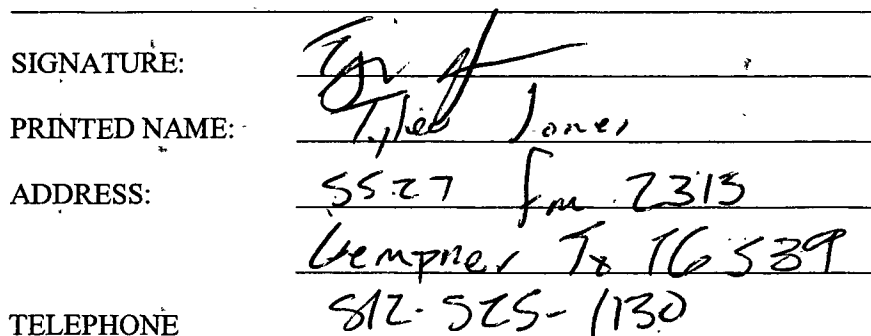 SIGNATURE:
PRINTED NAME: Tyler Jones
ADDRESS: 5527 fm 2313
Kempner Tx 76539
TELEPHONE 512-525-1130